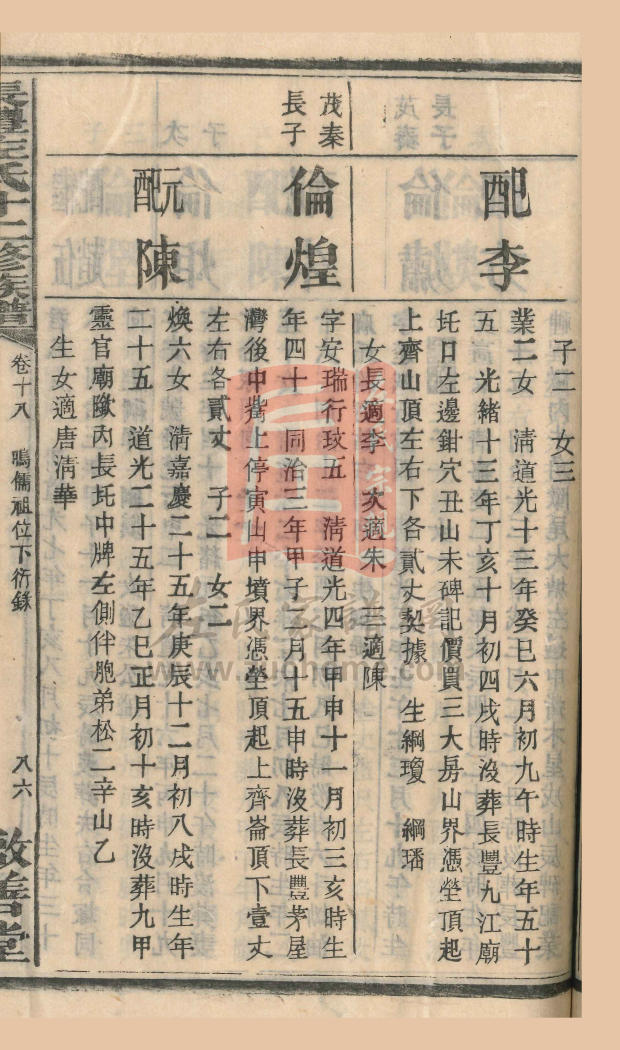 子二　女三
配李
業二女　淸道光十三年癸巳六月初九午時生年五十
五　光緒十三年丁亥十月初四戌時沒葬長豐九江廟
圫口左邊鉗穴丑山未碑記價買三大房山界憑塋頂起
上齊山頂左右下各貳丈契據　生綱瓊　綱璠
女長適李　次適朱　三適陳
茂秦
長子
倫煌
字安瑞行玟五　淸道光四年甲申十一月初三亥時生
年四十　同治三年甲子二月十五申時沒葬長豐茅屋
灣後中嘴上停寅山申墳界憑塋頂起上齊崙頂下壹丈
左右各貳丈　子二　女二
元配陳
煥六女　淸嘉慶二十五年庚辰十二月初八戌時生年
二十五　道光二十五年乙巳正月初十亥時沒葬九甲
靈官廟歐內長圫中牌左側伴胞弟松二辛山乙
生女適唐淸華
長豐汪氏十二修族譜
卷十八　鳴儒祖位下衍錄
八六
敦善堂
www.zuohome.com